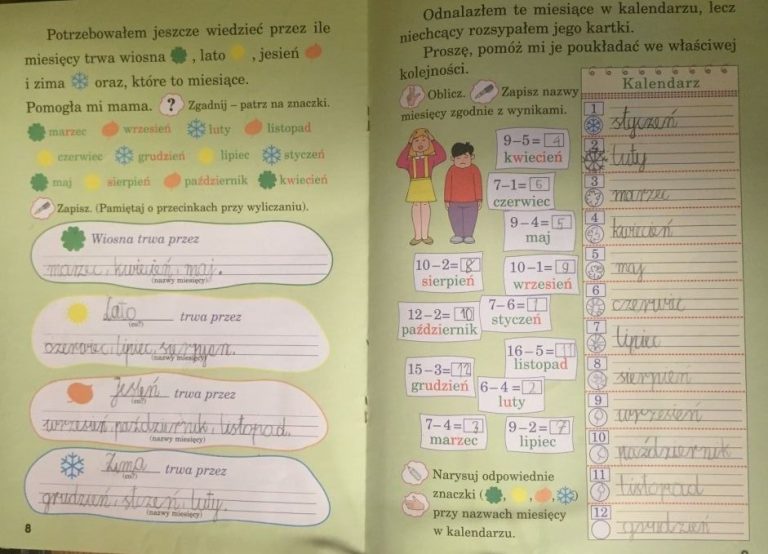 Potrzebowałem jeszcze wiedzieć przez ile
miesięcy trwa wiosna , lato , jesień
i zima oraz, które to miesiące.
Pomogła mi mama. ? Zgadnij – patrz na znaczki.
marzec wrzesień luty listopad
czerwiec grudzień lipiec styczeń
maj sierpień październik kwiecień
Zapisz. (Pamiętaj o przecinkach przy wyliczaniu).
Wiosna trwa przez
marzec, kwiecień, maj.
(nazwy miesięcy)
Lato trwa przez
(co?)
czerwiec, lipiec, sierpień.
(nazwy miesięcy)
Jesień trwa przez
wrzesień, październik, listopad.
(nazwy miesięcy)
Zima trwa przez
grudzień, stczeń, luty.
(nazwy miesięcy)
8
Odnalazłem te miesiące w kalendarzu, lecz
niechcący rozsypałem jego kartki.
Proszę, pomóż mi je poukładać we właściwej
kolejności.
Oblicz. Zapisz nazwy
miesięcy zgodnie z wynikami.
9–5= 4
kwiecień
7–1= 6
czerwiec
9–4= 5
maj
10–2= 8
sierpień
10–1= 9
wrzesień
12–2= 10
październik
7–6= 1
styczeń
16–5= 11
listopad
15–3= 12
grudzień
6–4= 2
luty
7–4= 3
marzec
9–2= 7
lipiec
Narysuj odpowiednie
znaczki ( , , , )
przy nazwach miesięcy
w kalendarzu.
Kalendarz
1
styczeń
2
luty
3
marzec
4
kwiecień
5
maj
6
czerwiec
7
lipiec
8
sierpień
9
wrzesień
10
październik
11
listopad
12
grudzień